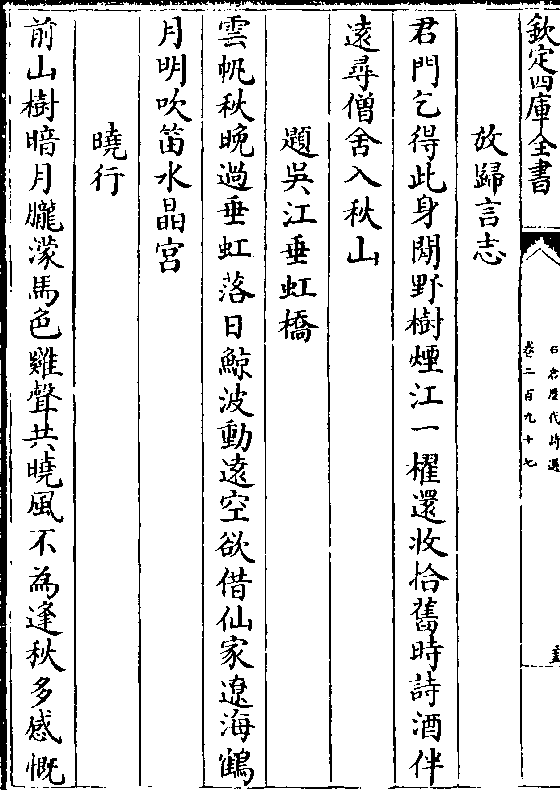 欽定四庫全書
石倉歷代詩選
卷二百九十七
放歸言志
君門乞得此身閒野樹煙江一櫂還收拾舊時詩酒伴
遠尋僧舍入秋山
題吳江垂虹橋
雲帆秋晚過垂虹落日鯨波動遠空欲借仙家遼海鶴
月明吹笛水晶宮
曉行
前山樹暗月朧濛馬色雞聲共曉風不為逢秋多感慨